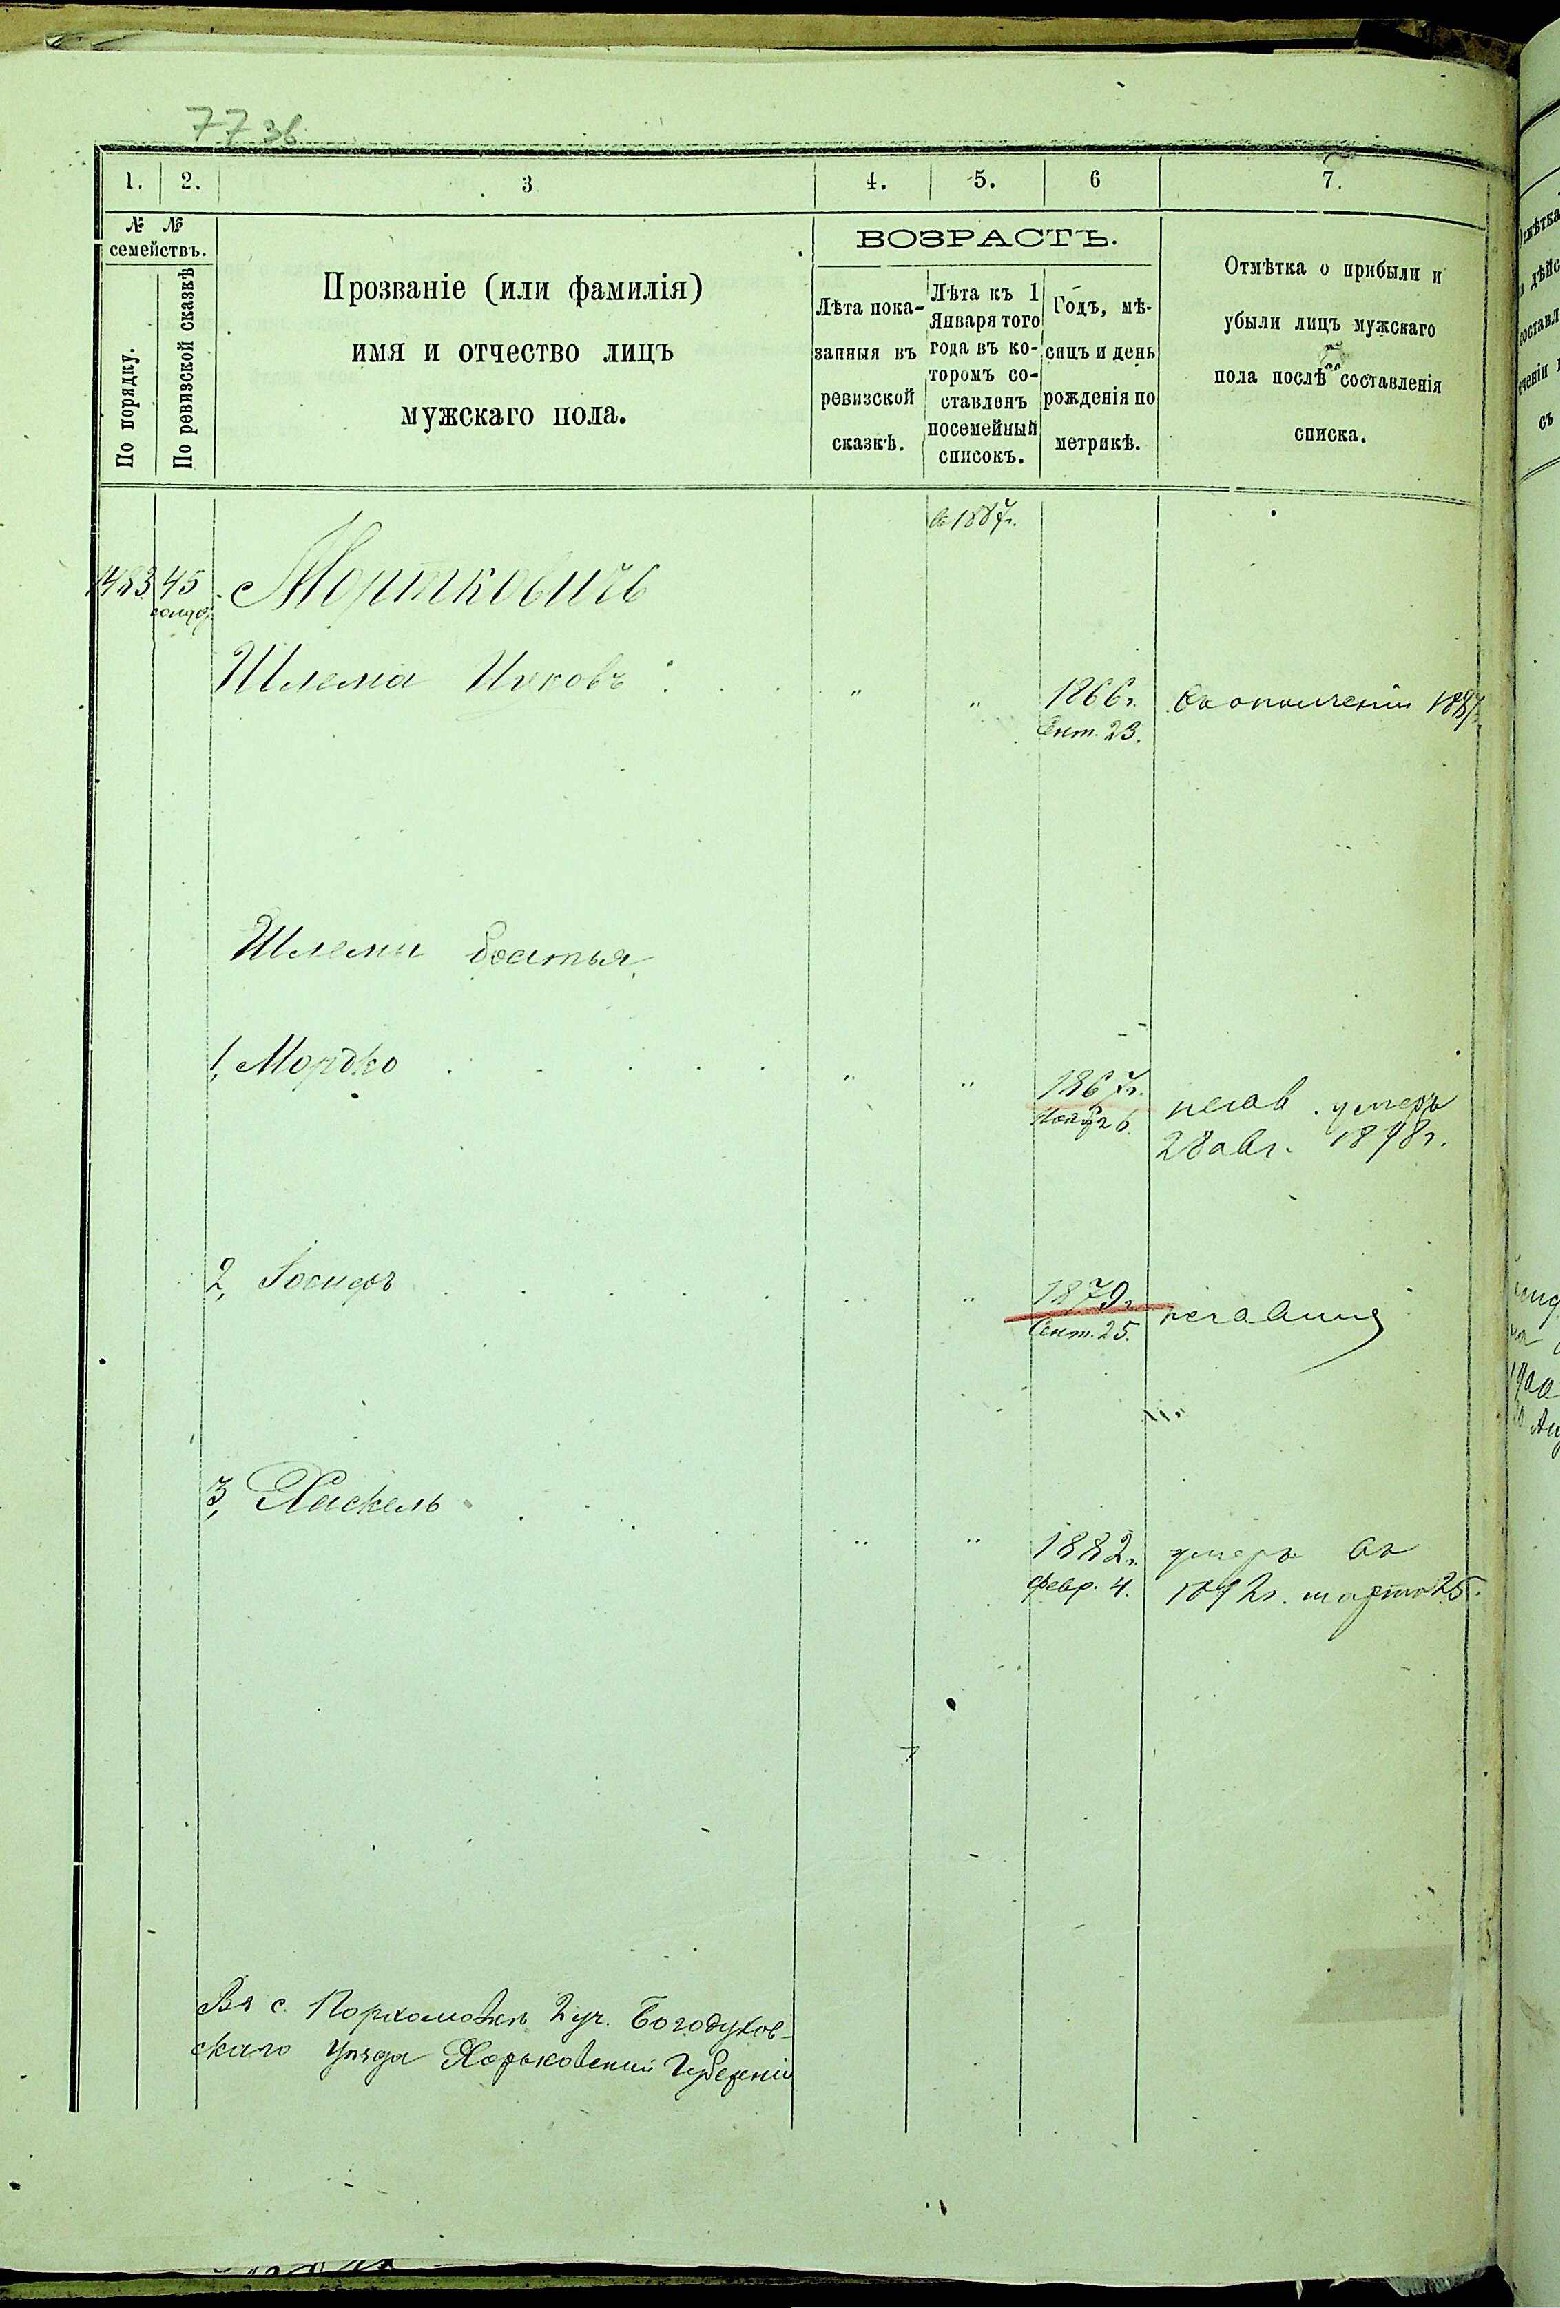 77 зв
1. 2. 3 4. 5. 6 7.
№ №
семействъ.
По порядку.
По ревизской сказкѣ
Прозваніе (или фамилія)
имя и отчество лицъ
мужскаго пола.
ВОЗРАСТЪ.
Лѣта пока-
занныя въ
ревизской
сказкѣ.
Лѣта къ 1
Января того
года въ ко-
торомъ со-
ставленъ
посемейный
списокъ.
Годъ, мѣ-
сяцъ и день
рожденія по
метрикѣ.
Отмѣтка о прибыли и
убыли лицъ мужскаго
пола послѣ составленія
списка.
съ 1887г.
1483 45 Мортковичъ
Шлема Ицковъ 1866г. Въ ополченіи 1887г.
Сент. 23.
Шлемы братья
1, Мордко 1867г. умеръ
26. 28 авг. 1898г.
2, Іосифъ 1879г.
Сент. 25.
3, Хаскель 1882г. умеръ въ
Февр. 4. 1892г. марта 25.
Въ с. Порхомовкѣ 2 уч. Богодухов-
скаго уѣзда Харьковской Губерніи